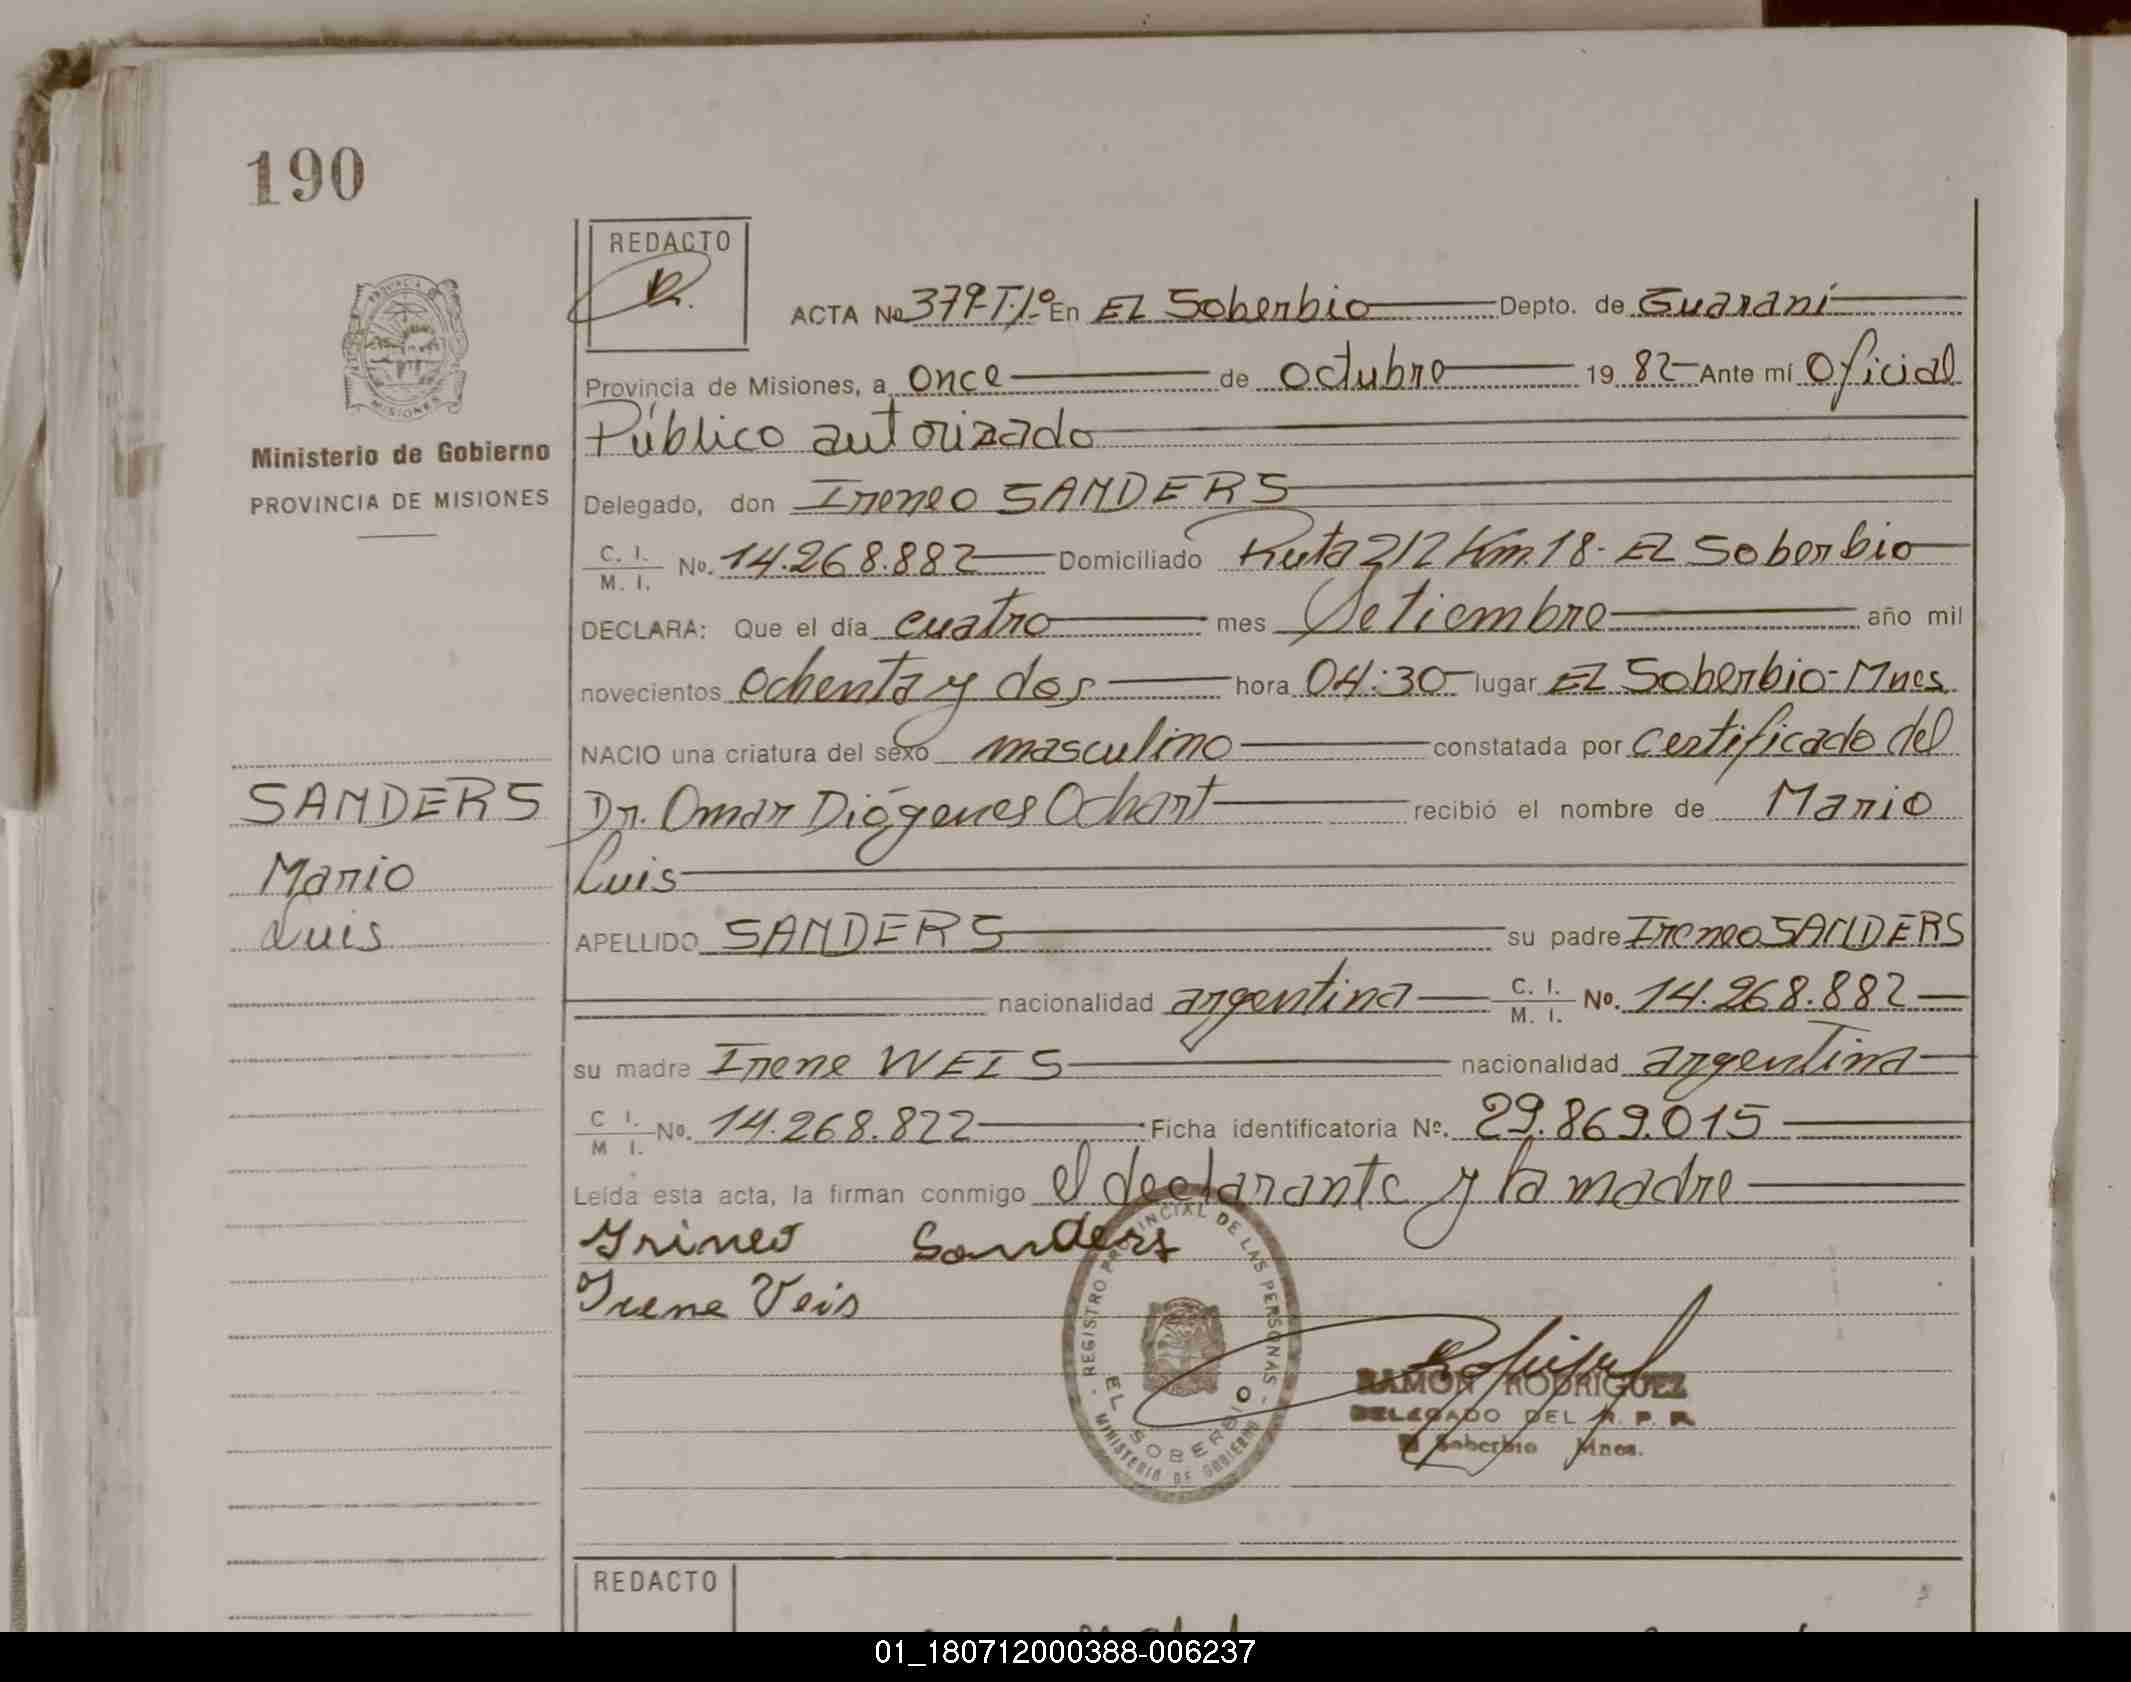 190
REDACTO
ACTA No 379-T.1º En El Soberbio Depto. de Guaraní
Provincia de Misiones, a once de octubre 19 82 Ante mí Oficial
Público autorizado
PROVINCIA DE
MISIONES
Ministerio de Gobierno
PROVINCIA DE MISIONES
Delegado, don Ireneo SANDERS
C. I.
M. I. No. 14.268.882 Domiciliado Ruta 212 Km. 18- El Soberbio
DECLARA: Que el día cuatro mes Setiembre año mil
novecientos ochenta y dos hora 04:30 lugar El Soberbio-Mnes
NACIO una criatura del sexo masculino constatada por certificado del
SANDERS
Mario
Luis
Dr. Omar Diógenes Ochort recibió el nombre de Mario
Luis
APELLIDO SANDERS su padre Ireneo SANDERS
nacionalidad argentina C. I.
M. I. No. 14.268.882
su madre Irene WEIS nacionalidad argentina
C I.
M I. No. 14.268.822 Ficha identificatoria Nº. 29.869.015
Leída esta acta, la firman conmigo el declarante y la madre
Irineo Sanders
Irene Veis
- REGISTRO PROVINCIAL DE LAS PERSONAS -
EL SOBERBIO
MINISTERIO DE GOBIERNO
RAMON RODRIGUEZ
DELEGADO DEL R. P. P.
El Soberbio Mnes.
REDACTO
01_180712000388-006237